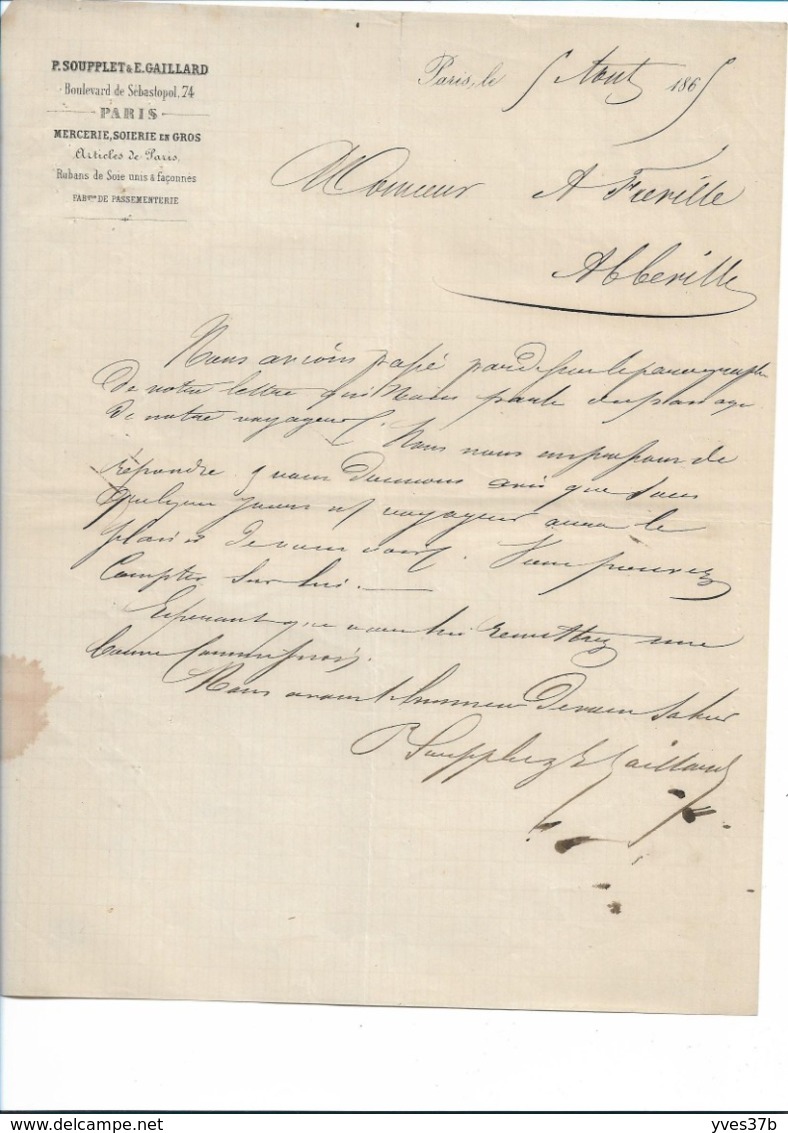 P. SOUPPLET & E. GAILLARD
Boulevard de Sébastopol, 74
PARIS
MERCERIE, SOIERIE EN GROS
Articles de Paris,
Rubans de Soie unis & façonnés
FABque DE PASSEMENTERIE
Paris, le 5 Aout 1865
Monsieur A
Abbeville
Nous avions passé par dessus le paragraphe
de votre lettre qui nous parle du passage
de notre voyageur. Nous nous empressons de
répondre & vous donnons avis que sous
quelques jours voyageur aura le
plaisir de vous voir. Vous pouvez
Compter sur lui. —
Esperant que vous lui remettrez une
bonne Commission.
Nous avons l'honneur de vous saluer
P Soupplet & E Gaillard
yves37b